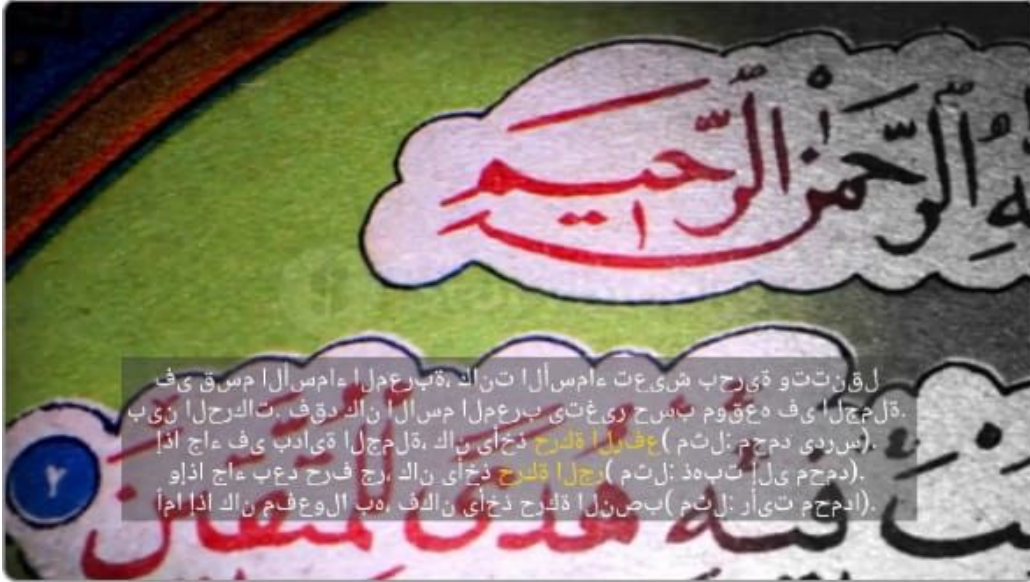 ٱلرَّحْمَٰنِ ٱلرَّحِيمِ
في قسم الأسماء المعربة، كانت الأسماء تعيش بحرية وتتنقل
بين الحركات. فقد كان الاسم المعرب يتغير حسب موقعه في الجملة.
إذا جاء في بداية الجملة، كان يأخذ حركة الرفع (مثل: محمد يدرس).
وإذا جاء بعد حرف جر، كان يأخذ حركة الجر (مثل: ذهبت إلى محمد).
أما إذا كان مفعولا به، فكان يأخذ حركة النصب (مثل: رأيت محمدا).
فِيهِ هُدًى لِّلْمُتَّقِينَ ٢